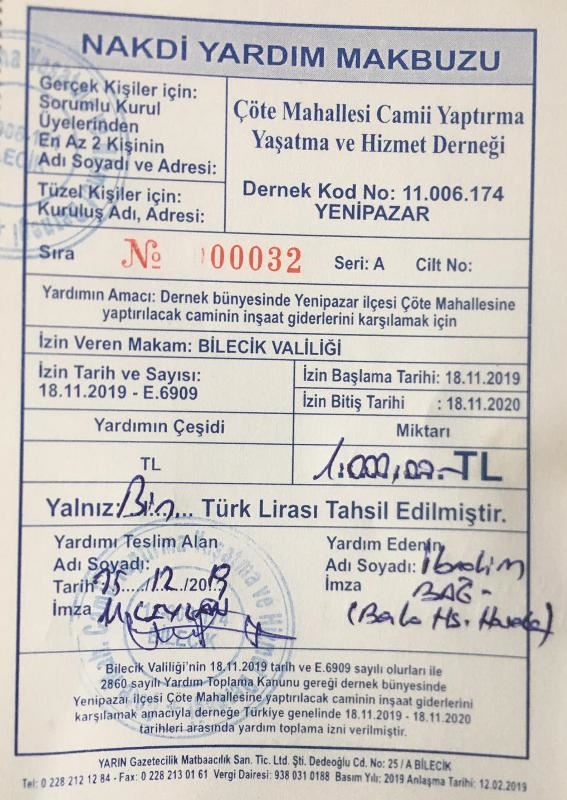 NAKDİ YARDIM MAKBUZU
Gerçek Kişiler için:
Sorumlu Kurul
Üyelerinden
En Az 2 Kişinin
Adı Soyadı ve Adresi:
Tüzel Kişiler için:
Kuruluş Adı, Adresi:
Çöte Mahallesi Camii Yaptırma
Yaşatma ve Hizmet Derneği
Dernek Kod No: 11.006.174
YENİPAZAR
Sıra № 00032 Seri: A Cilt No:
Yardımın Amacı: Dernek bünyesinde Yenipazar ilçesi Çöte Mahallesine
yaptırılacak caminin inşaat giderlerini karşılamak için
İzin Veren Makam: BİLECİK VALİLİĞİ
İzin Tarih ve Sayısı:
18.11.2019 - E.6909
İzin Başlama Tarihi: 18.11.2019
İzin Bitiş Tarihi : 18.11.2020
Yardımın Çeşidi Miktarı
TL 1.000,00.-TL
Yalnız Bin... Türk Lirası Tahsil Edilmiştir.
Yardımı Teslim Alan
Adı Soyadı:
Tarih 15...../12./2019
İmza M.CEYLAN
Yardım Edenin
Adı Soyadı: İbrahim
İmza BAĞ-
BİLECİK
- Bilecik Valiliği'nin 18.11.2019 tarih ve E.6909 sayılı olurları ile
2860 sayılı Yardım Toplama Kanunu gereği dernek bünyesinde
Yenipazar ilçesi Çöte Mahallesine yaptırılacak caminin inşaat giderlerini
karşılamak amacıyla derneğe Türkiye genelinde 18.11.2019 - 18.11.2020
tarihleri arasında yardım toplama izni verilmiştir.
YARIN Gazetecilik Matbaacılık San. Tic. Ltd. Şti. Dedeoğlu Cd. No: 25 / A BİLECİK
Tel: 0 228 212 12 84 - Fax: 0 228 213 01 61 Vergi Dairesi: 938 031 0188 Basım Yılı: 2019 Anlaşma Tarihi: 12.02.2019